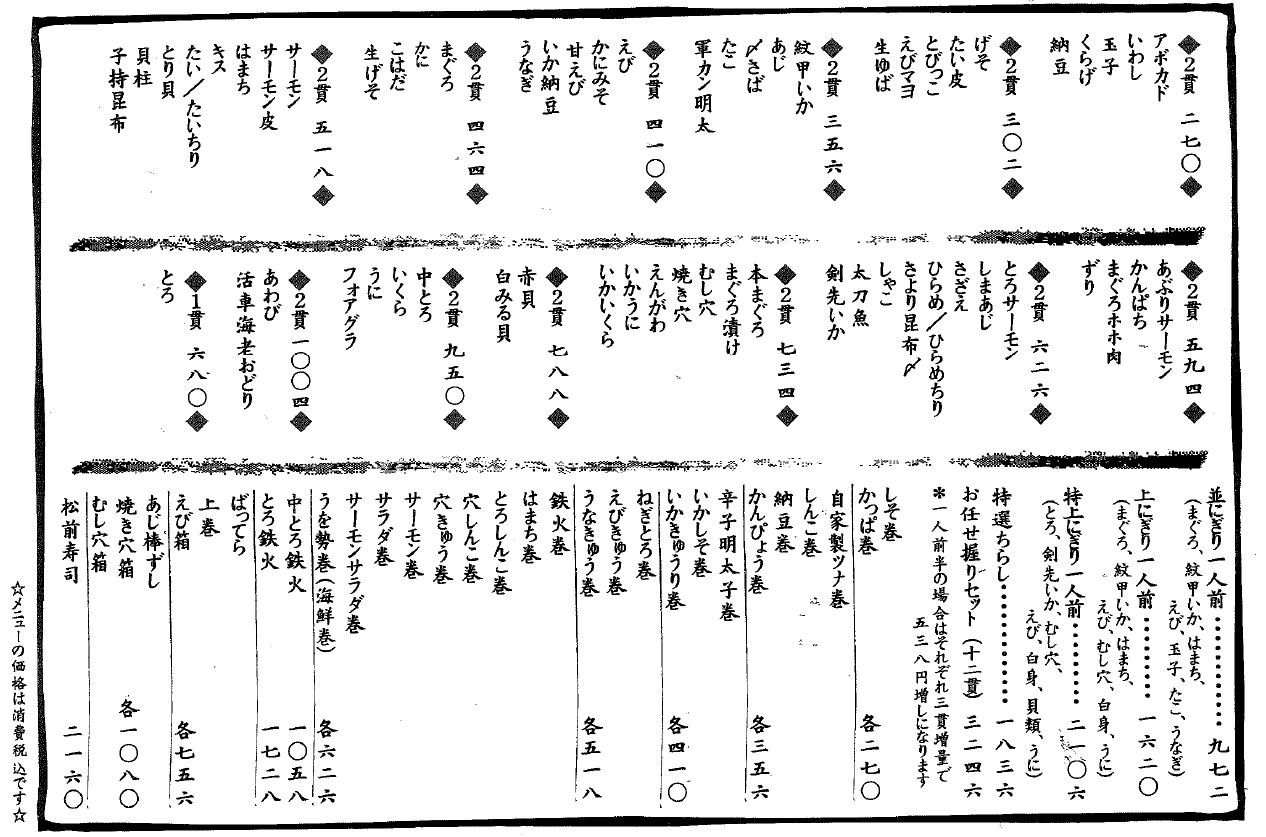 ◆2貫 二七〇◆
アボカド
いわし
玉子
くらげ
納豆
◆2貫 三〇二◆
げそ
たい皮
とびっこ
えびマヨ
生ゆば
◆2貫 三五六◆
紋甲いか
あじ
〆さば
たこ
軍カン明太
◆2貫 四一〇◆
えび
かにみそ
甘えび
いか納豆
うなぎ
◆2貫 四六四◆
まぐろ
かに
こはだ
生げそ
◆2貫 五一八◆
サーモン
サーモン皮
はまち
キス
たい/たいちり
とり貝
貝柱
子持昆布
◆2貫 五九四◆
あぶりサーモン
かんぱち
まぐろホホ肉
ずり
◆2貫 六二六◆
とろサーモン
しまあじ
さざえ
ひらめ/ひらめちり
さより昆布〆
しゃこ
太刀魚
剣先いか
◆2貫 七三四◆
本まぐろ
まぐろ漬け
むし穴
焼き穴
えんがわ
いかうに
いかいくら
◆2貫 七八八◆
赤貝
白みる貝
◆2貫 九五〇◆
中とろ
いくら
うに
フォアグラ
◆2貫 一〇〇四◆
あわび
活車海老おどり
◆1貫 六八〇◆
とろ
並にぎり一人前・・・・・・・・・・ 九七二
(まぐろ、紋甲いか、はまち、
えび、玉子、たこ、うなぎ)
上にぎり一人前・・・・・・・・ 一六二〇
(まぐろ、紋甲いか、はまち、
えび、むし穴、白身、うに)
特上にぎり一人前・・・・・・・・ 二一〇六
(とろ、剣先いか、むし穴、
えび、白身、貝類、うに)
特選ちらし・・・・・・・・・・・・ 一八三六
お任せ握りセット(十二貫) 三二四六
*一人前半の場合はそれぞれ三貫増量で
五三八円増しになります
しそ巻
かっぱ巻 各二七〇
自家製ツナ巻
しんこ巻
納豆巻
かんぴょう巻 各三五六
辛子明太子巻
いかしそ巻
いかきゅうり巻 各四一〇
ねぎとろ巻
えびきゅう巻
うなきゅう巻 各五一八
鉄火巻
はまち巻
とろしんこ巻
穴しんこ巻
穴きゅう巻
サーモン巻
サラダ巻
サーモンサラダ巻
うを勢巻(海鮮巻) 各六二六
中とろ鉄火 一〇五八
とろ鉄火 一七二八
ばってら
上巻
えび箱 各七五六
あじ棒ずし
焼き穴箱 各一〇八〇
むし穴箱
松前寿司 二一六〇
☆メニューの価格は消費税込です☆